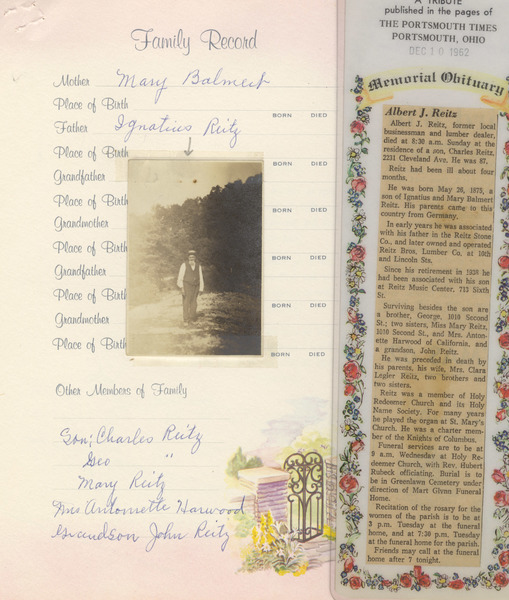 Family Record
Mother Mary Balmert
Place of Birth
BORN DIED
Father Ignatius Reitz
Place of Birth
BORN DIED
Grandfather
Place of Birth
BORN DIED
Grandmother
Place of Birth
BORN DIED
Grandfather
Place of Birth
BORN DIED
Grandmother
Place of Birth
BORN DIED
Other Members of Family
Son; Charles Reitz
Geo "
Mary Reitz
Mrs Antoinette Harwood
Grandson John Reitz
A TRIBUTE
published in the pages of
THE PORTSMOUTH TIMES
PORTSMOUTH, OHIO
DEC 10 1962
Memorial Obituary
Albert J. Reitz
Albert J. Reitz, former local
businessman and lumber dealer,
died at 8:30 a.m. Sunday at the
residence of a son, Charles Reitz,
2231 Cleveland Ave. He was 87.
Reitz had been ill about four
months.
He was born May 26, 1875, a
son of Ignatius and Mary Balmert
Reitz. His parents came to this
country from Germany.
In early years he was associated
with his father in the Reitz Stone
Co., and later owned and operated
Reitz Bros. Lumber Co. at 10th
and Lincoln Sts.
Since his retirement in 1938 he
had been associated with his son
at Reitz Music Center, 713 Sixth
St.
Surviving besides the son are
a brother, George, 1010 Second
St.; two sisters, Miss Mary Reitz,
1010 Second St., and Mrs. Antoi-
nette Harwood of California, and
a grandson, John Reitz.
He was preceded in death by
his parents, his wife, Mrs. Clara
Legler Reitz, two brothers and
two sisters.
Reitz was a member of Holy
Redeemer Church and its Holy
Name Society. For many years
he played the organ at St. Mary's
Church. He was a charter mem-
ber of the Knights of Columbus.
Funeral services are to be at
9 a.m. Wednesday at Holy Re-
deemer Church, with Rev. Hubert
Rubeck officiating. Burial is to
be in Greenlawn Cemetery under
direction of Mart Glynn Funeral
Home.
Recitation of the rosary for the
women of the parish is to be at
3 p.m. Tuesday at the funeral
home, and at 7:30 p.m. Tuesday
at the funeral home for the parish.
Friends may call at the funeral
home after 7 tonight.